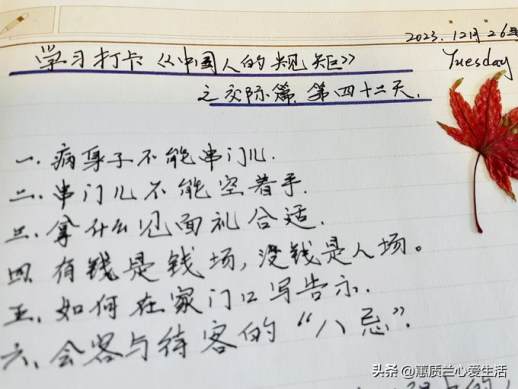 2023.12月26
Tuesday
学习打卡《中国人的规矩》
之交际篇.第四十二天.
一.病身子不能串门儿.
二.串门儿不能空着手.
三.拿什么见面礼合适.
四.有钱是钱场,没钱是人场。
五.如何在家门口写告示.
六.会客与待客的“八忌”.
头条@蕙质兰心爱生活